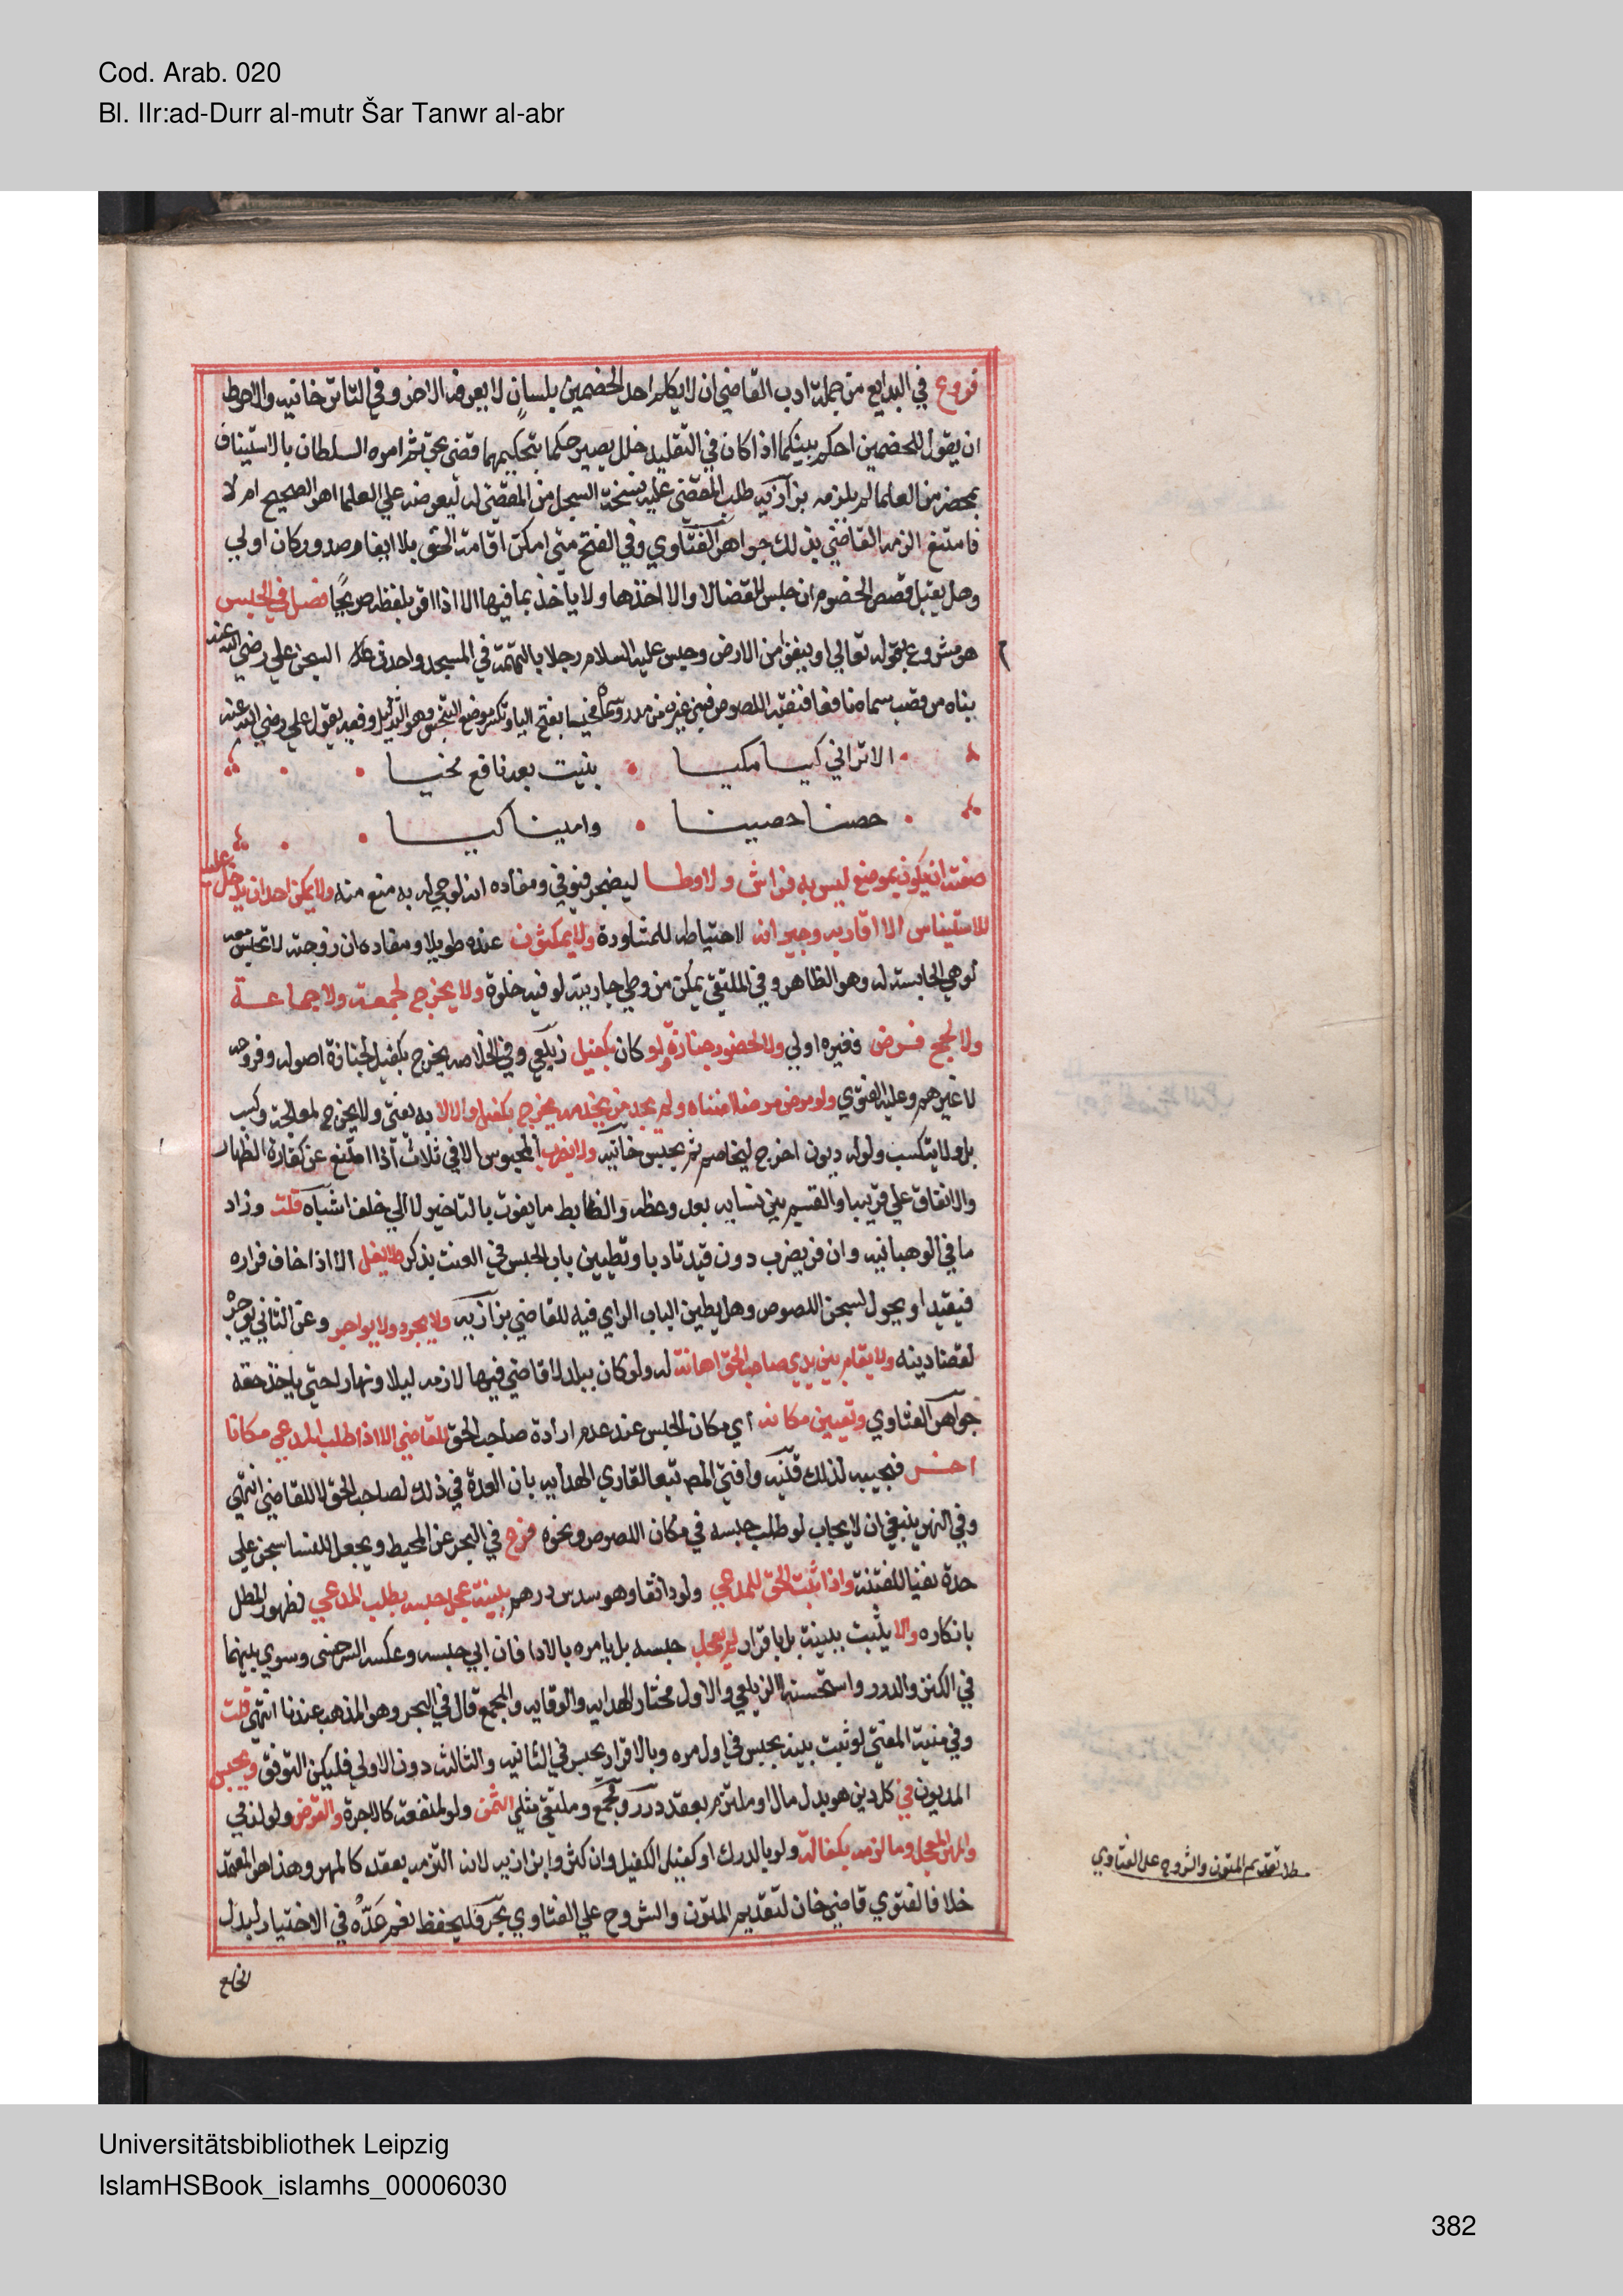 Cod. Arab. 020
Bl. IIr:ad-Durr al-mutr Šar Tanwr al-abr
فروع في البدايع من جملة ادب القاضي ان لا يكلم احد الخصمين بلسان لا يعرفه الاخر وفي التاترخانيه والاحوط
ان يقول للخصمين احكم بينكما اذا كان في التقليد خلل يصير حكما بتحكيمهما قضى بحق ثم امره السلطان بالاستيناف
بمحضر من العلما لم يلزمه بزازيه طلب المقضي عليه نسخة السجل من المقضي له ليعرضه علي العلما اهو الصحيح ام لا
فامتنع الزمه القاضي بذلك جواهر الفتاوي وفي الفتح متي امكن اقامة الحق بلا ايغار صدور كان اولي
وهل يقبل قصص الخصوم ان جلس للقضا لا والا اخذها ولا ياخذ بما فيها الا اذا اقر بلفظه صريحًا فصل في الحبس
هو مشروع بقوله تعالي او ينفوا من الارض وحبس عليه السلام رجلا بالتهمة في المسجد واحدث السجن علي رضي الله عنه
بناه من قصب سماه نافعا فنقبه اللصوص فبنى غيره من مدر وسماه مخيسا بفتح اليا وتكسر موضع التخيس وهو التذليل وفيه يقول علي رضي الله عنه
الا تراني كيسا مكيسا بنيت بعد نافع مخيسا
حصنا حصينا وامينا كيسا
صفته ان يكون بموضع ليس به فراش ولا وطا ليضجر فيوفي ومفاده انه لو جي له به منع منه ولا يمكن احد ان يدخل عليه
للاستيناس الا اقاربه وجيرانه لاحتياطه للمشاورة ولا يمكثون عنده طويلا ومفاده ان زوجته لا تحبس معه
لو هي الحابسة له وهو الظاهر وفي الملتقي يمكن من وطي جاريته لو فيه خلوة ولا يخرج لجمعة ولا جماعة
ولا لحج فرض فغيره اولي ولا لحضور جنازة ولو كان بكفيل زيلعي وفي الخلاصه يخرج بكفيل لجنازة اصوله وفروعه
لا غيرهم وعليه الفتوي ولو مرض مرضا اضناه ولم يجد من يخدمه يخرج بكفيل والا لا به يفتي ولا يخرج لمعالجة وكسب
بل ولا يتكسب ولو له ديون اخرج ليخاصم ثم يحبس خانيه ولا يضرب المحبوس الا في ثلاث اذا امتنع عن كفارة الظهار
والانفاق علي قريبه والقسم بين نسايه بعد وعظه والضابط ما يفوت بالتاخير لا الي خلف اشباه قلت وزاد
ما في الوهبانيه وان فر يضرب دون قيد تادبا وتطيين باب الحبس في العنت يذكر ولا يغل الا اذا خاف فراره
فيقيد او يحول لسجن اللصوص وهل يطين الباب الراي فيه للقاضي بزازيه ولا يجرد ولا يواجر وعن الثاني يوجره
لقضا دينه ولا يقام بين يدي صاحب الحق اهانة له ولو كان ببلد لا قاضي فيها لازمه ليلا ونهارا حتي ياخذ حقه
جواهر الفتاوي وتعيين مكانه اي مكان الحبس عند عدم ارادة صاحب الحق للقاضي الا اذا طلب المدعي مكانا
اخر فيجيبه لذلك قنيه وافتي المصـ تبعا لقاري الهدايه بان العبرة في ذلك لصاحب الحق لا للقاضي انتهى
وفي النهر ينبغي ان لا يجاب لو طلب حبسه في مكان اللصوص ونحوه فرع في البحر عن المحيط ويجعل للنسا سجن علي
حدة نفيا للفتنة واذا ثبت الحق للمدعي ولو دانقا وهو سدس درهم ببينة عجل حبسه بطلب المدعي لظهور المطل
بانكاره والا يثبت ببينة بل باقرار لم يعجل حبسه بل يامره بالادا فان ابي حبسه وعكسه السرخسي وسوي بينهما
في الكنز والدرر واستحسنه الزيلعي والاول مختار الهدايه والوقايه والمجمع قال في البحر وهو المذهب عندنا انتهى قلت
وفي منية المفتي لو ثبت ببينه يحبس في اول مره وبالاقرار يحبس في الثانيه والثالثه دون الاولي فليكن التوفيق ويحبس
المديون في كل دين هو بدل مال او ملتزم بعقد درر ومجمع وملتقي مثل الثمن ولو لمنفعة كالاجرة والقرض ولو لذمي
والمهر المعجل وما لزمه بكفالة ولو بالدرك او كفيل الكفيل وان كثروا بزازيه لانه التزمه بعقده كالمهر وهذا هو المعتمد
خلافا لفتوي قاضيخان لتقديم المتون والشروح علي الفتاوي بحر فليحفظ نعم عده في الاختيار لبدل
الخلع
مطلـ تقديم المتون والشروح على الفتاوي
Universitätsbibliothek Leipzig
IslamHSBook_islamhs_00006030
382